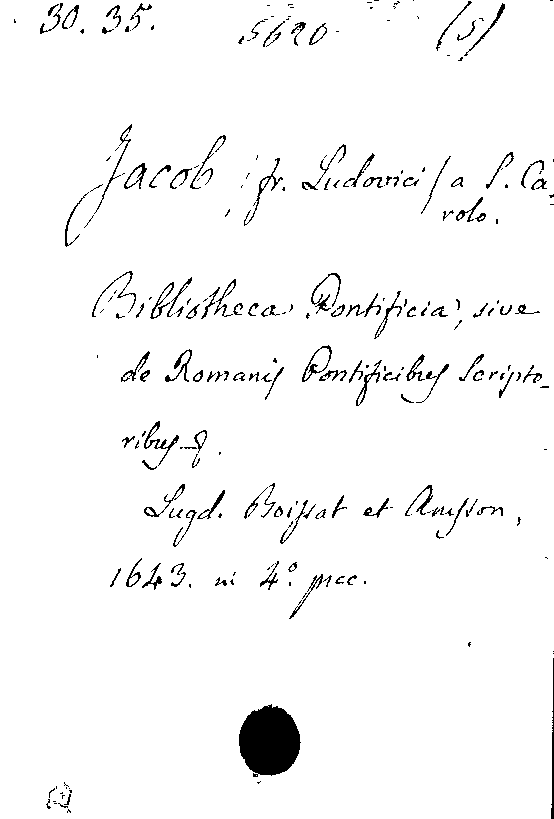 30. 35. 5620 (5)
Jacob (fr. Ludovici) a S. Ca-
rolo.
Bibliotheca Pontificia, sive
de Romanis Pontificibus Scripto-
ribus
Lugd. Boissat et Anisson,
1643. in 4º.